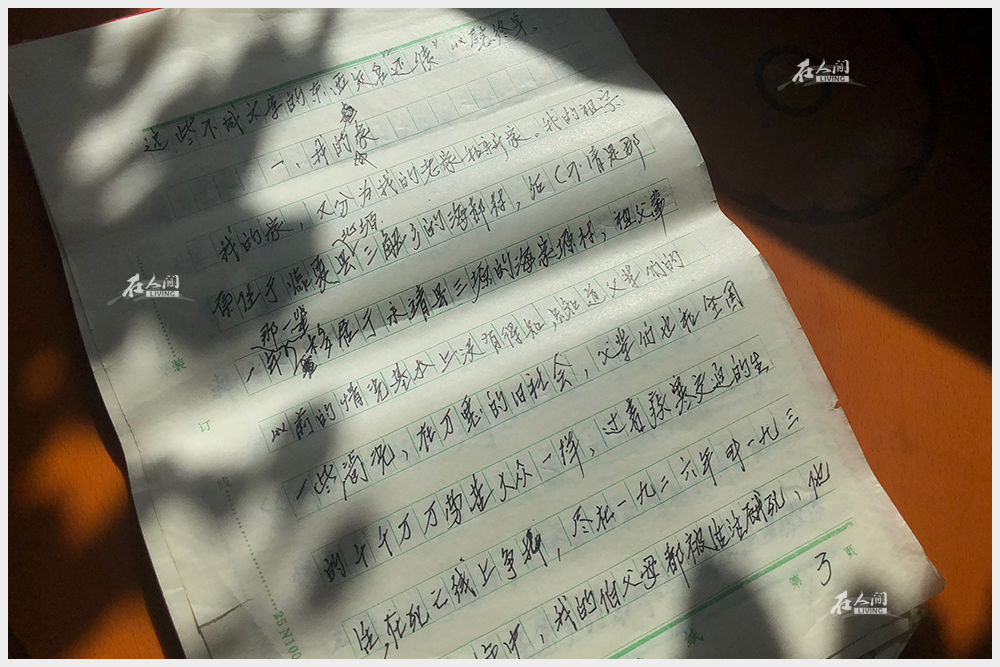 在人间
LIVING
这些不成文字的东西 "还债" 以慰终身。
一、我的家
我的家，又分为我的老家和新家。我的祖宗
北塬
原住于临夏县三 乡的海郝村，后（不清是那
一 移居于永靖县三塬的海家塬村，祖父辈
那一辈
在人间
LIVING
以前的情况基本上没有得知，只知道父辈们的
一些简况，在万恶的旧社会，父辈们也和全国
的千千万万劳苦大众一样，过着饥寒交迫的生
在死亡线上争扎，尽在一九二六年 一九三
年中，我的伯父母都被生活饿死，他
装
订
25 N100
纸
第 3 页
在人间
LIVING